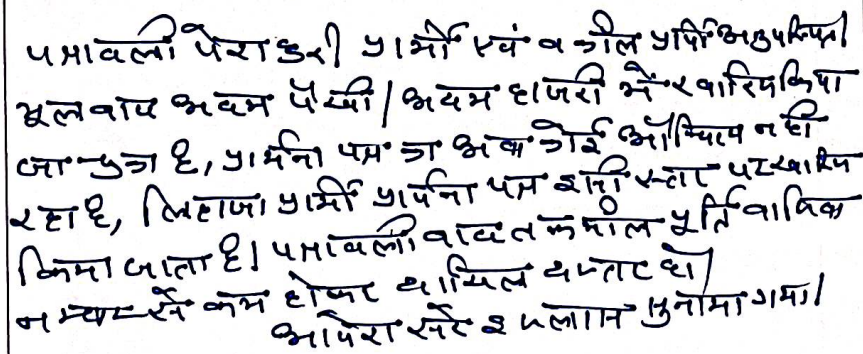 पत्रावली पेश हुई। प्रार्थी एवं वकील प्रार्थी अनुपस्थित।
मूल वाद अदम पैरवी / अदम हाजरी में खारिज किया
जा चुका है, प्रार्थना पत्र का अब कोई औचित्य नहीं
रहा है, लिहाजा प्रार्थी प्रार्थना पत्र इसी स्तर पर खारिज
किया जाता है। पत्रावली बाद तकमील पूर्ति वांछित
नम्बर से कम होकर दाखिल दफ्तर हो।
आदेश सरे इजलास सुनाया गया।